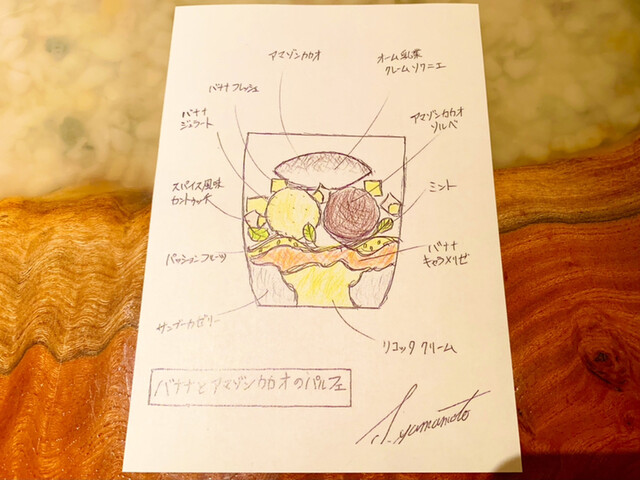 アマゾンカカオ
オーム乳業
クレームソワニエ
バナナフレッシュ
バナナ
ジェラート
アマゾンカカオ
ソルベ
スパイス風味
カントゥッチ
ミント
パッションフルーツ
バナナ
キャラメリゼ
サンブーカゼリー
リコッタ クリーム
バナナとアマゾンカカオのパルフェ
S. yamamoto